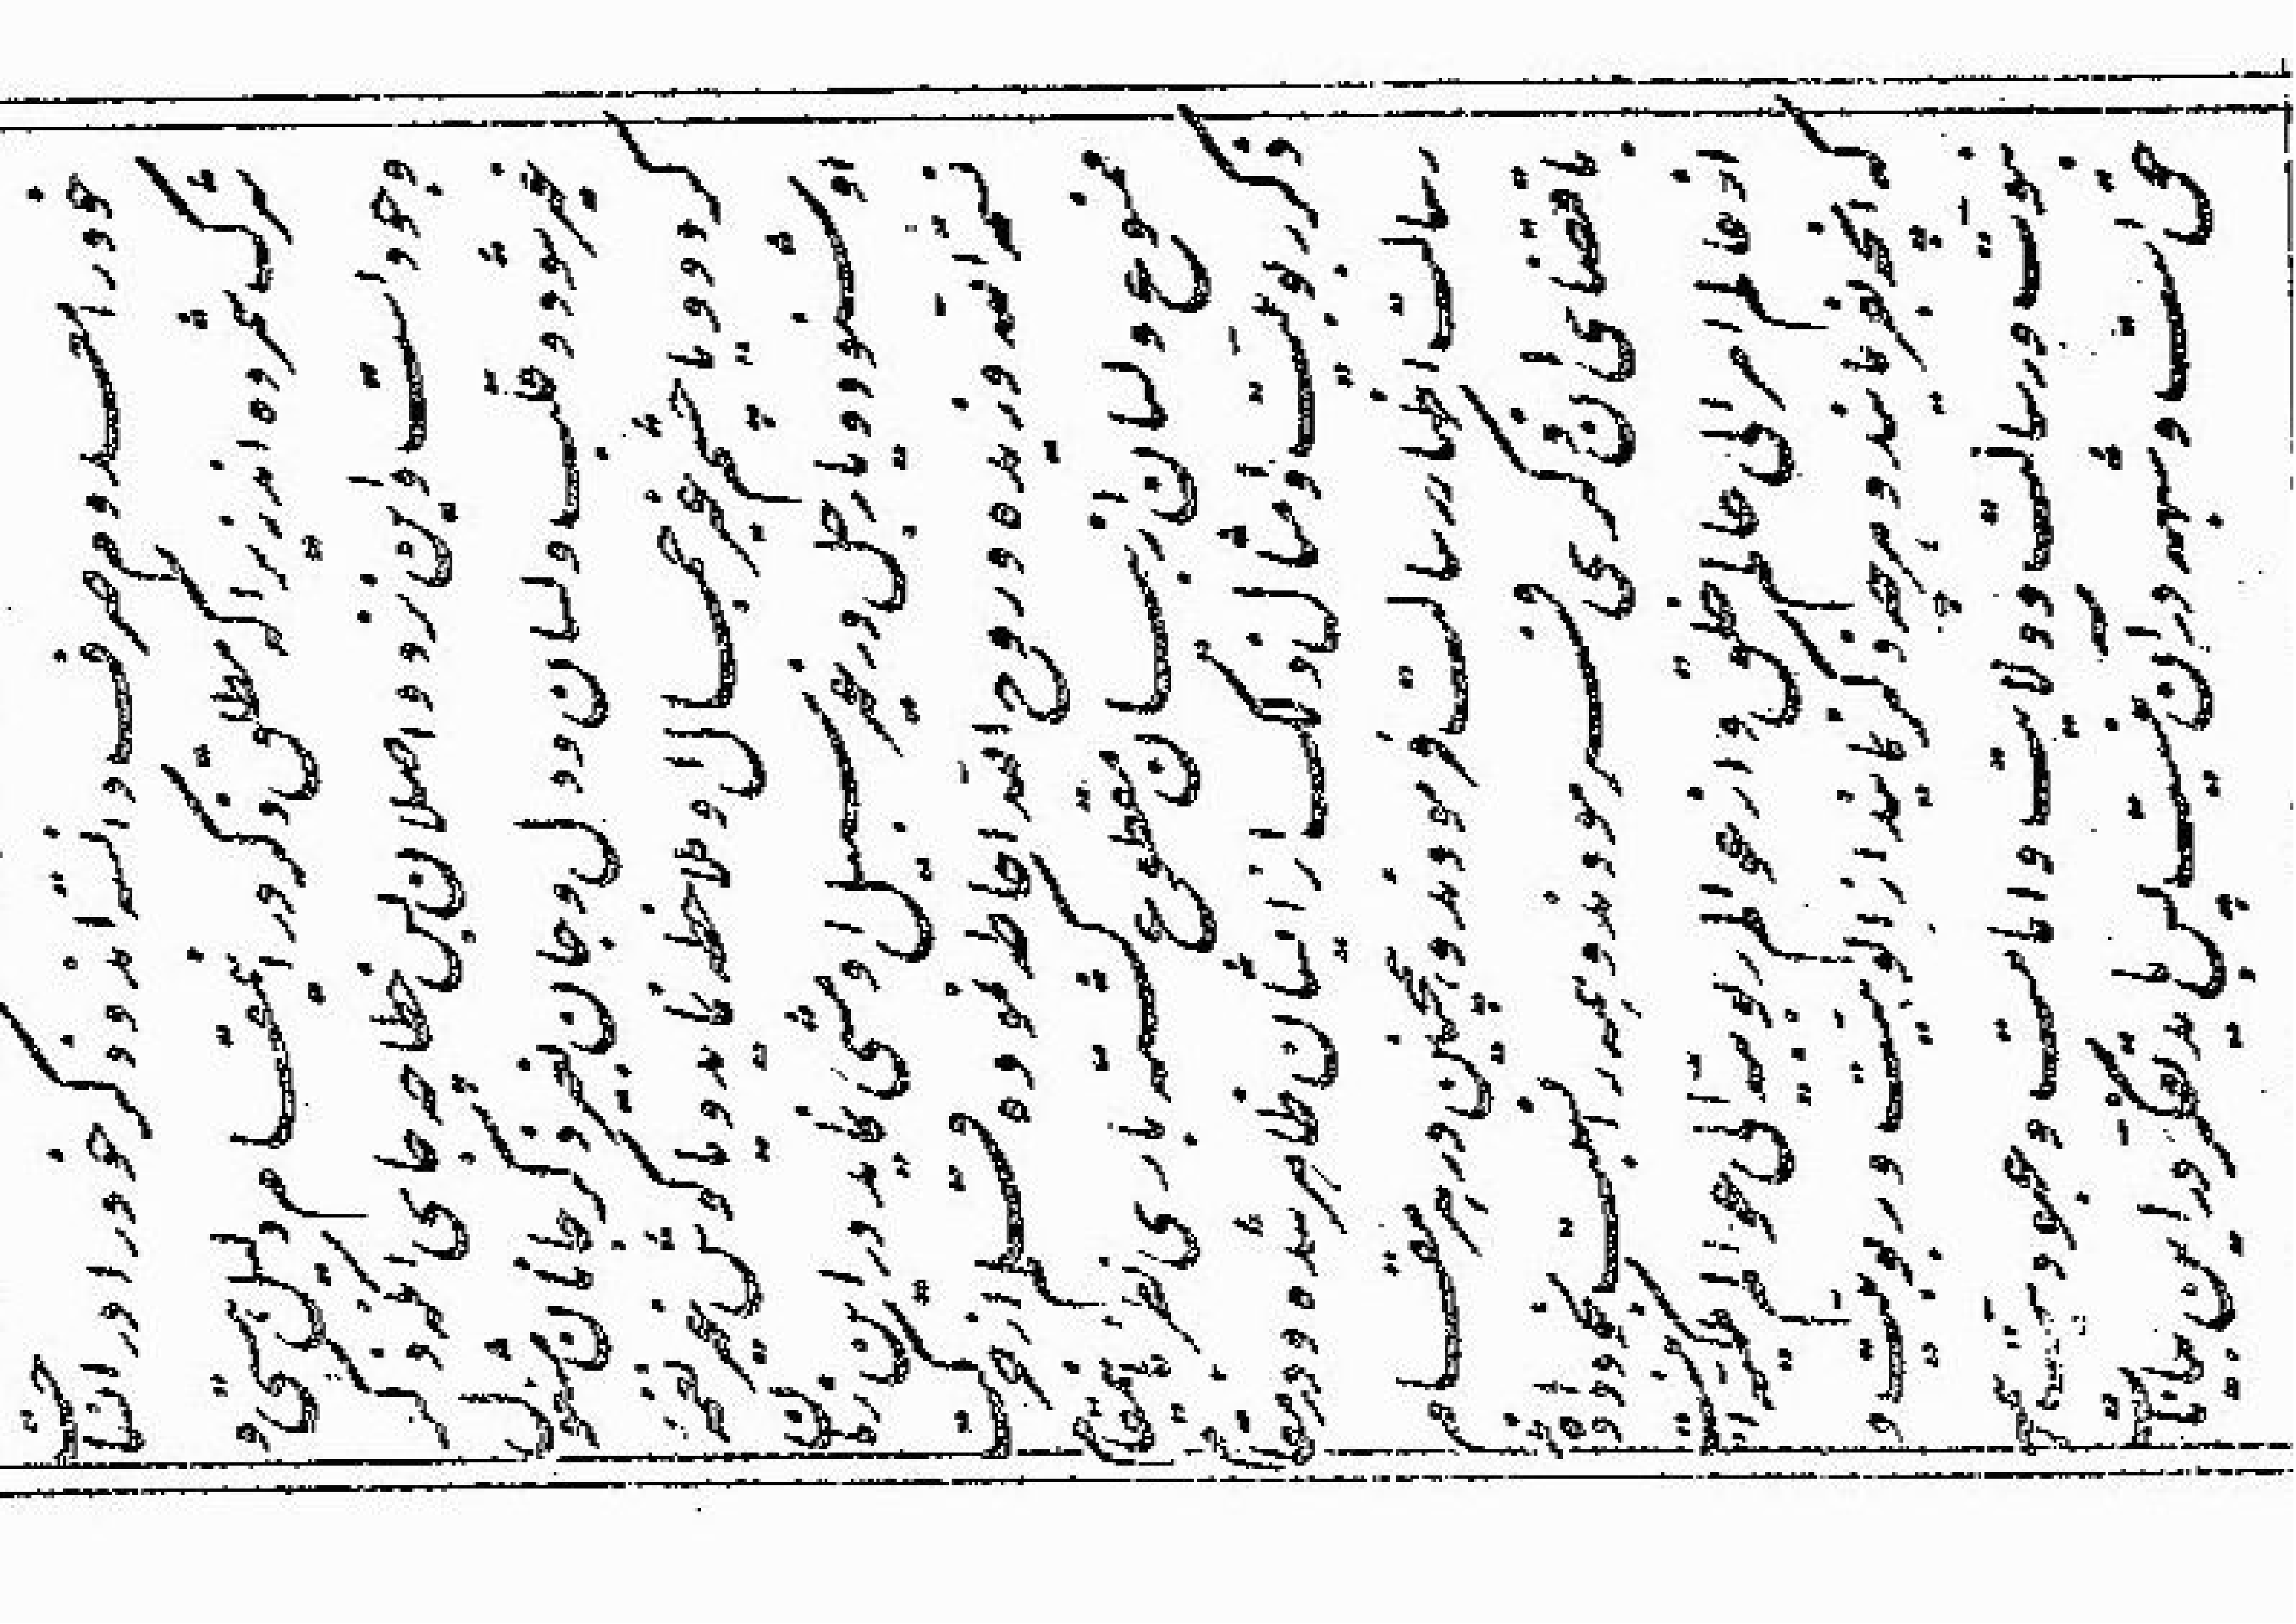 خود را معدوم صرف دانستند و ذکر خود را در ان ساحت
شرک شمرده اند زیرا که مطلق ذکر در این مقام دلیل هستی و
وجود است و این نزد واصلان بس خطا چه جای انکه ذکر
غیر شود و قلب و لسان و دل و جان بغیر ذکر جانان مشغول
گردد و یا چشم غیر جمال او ملاحظه نماید و یا گوش غیر نغمه
او شنود و یا رجل در غیر سبیل او مشی نماید در این زمان
نسمة الله وزیده و روح الله احاطه نموده قلم از حرکت
ممنوع و لسان از بیان مقطوع گشته باری نظر باین مقام
ذکر ربوبیت و امثال ذلک از ایشان ظاهر شده و در مقام
رسالت اظهار رسالت فرمودند و همچنین در هر مقام
باقتضای ان ذکری فرمودند و همه را نسبت بخود داده اند
از عالم امر الی عالم خلق و از عوالم ربوبیه الی عوالم ملکیه اینست
که آنچه بفرمایند و هرچه ذکر نمایند از الوهیت و ربوبیت و
نبوت و رسالت و ولایت و امامت و عبودیت همه
حق است و شبهه در ان نیست پس باید تفکر در این بیانات